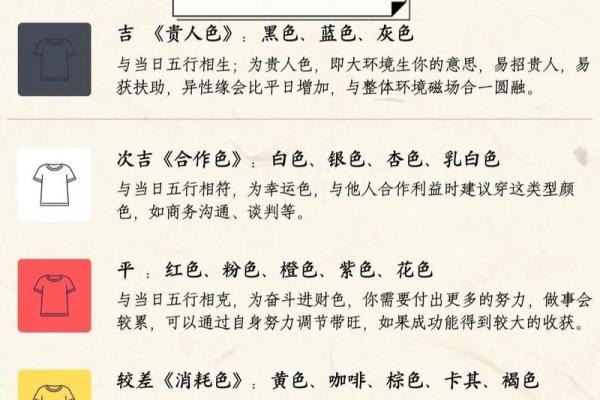 吉 《贵人色》：黑色、蓝色、灰色
与当日五行相生；为贵人色，即大环境生你的意思，易招贵人，易
获扶助，异性缘会比平日增加，与整体环境磁场合一圆融。
次吉《合作色》：白色、银色、杏色、乳白色
与当日五行相符，为幸运色，与他人合作利益时建议穿这类型颜
色，如商务沟通、谈判等。
平 ：红色、粉色、橙色、紫色、花色
与当日五行相克，为奋斗进财色，你需要付出更多的努力，做事会
较累，可以通过自身努力调节带旺，如果成功能得到较大的收获。
较差《消耗色》：黄色、咖啡、棕色、卡其、褐色